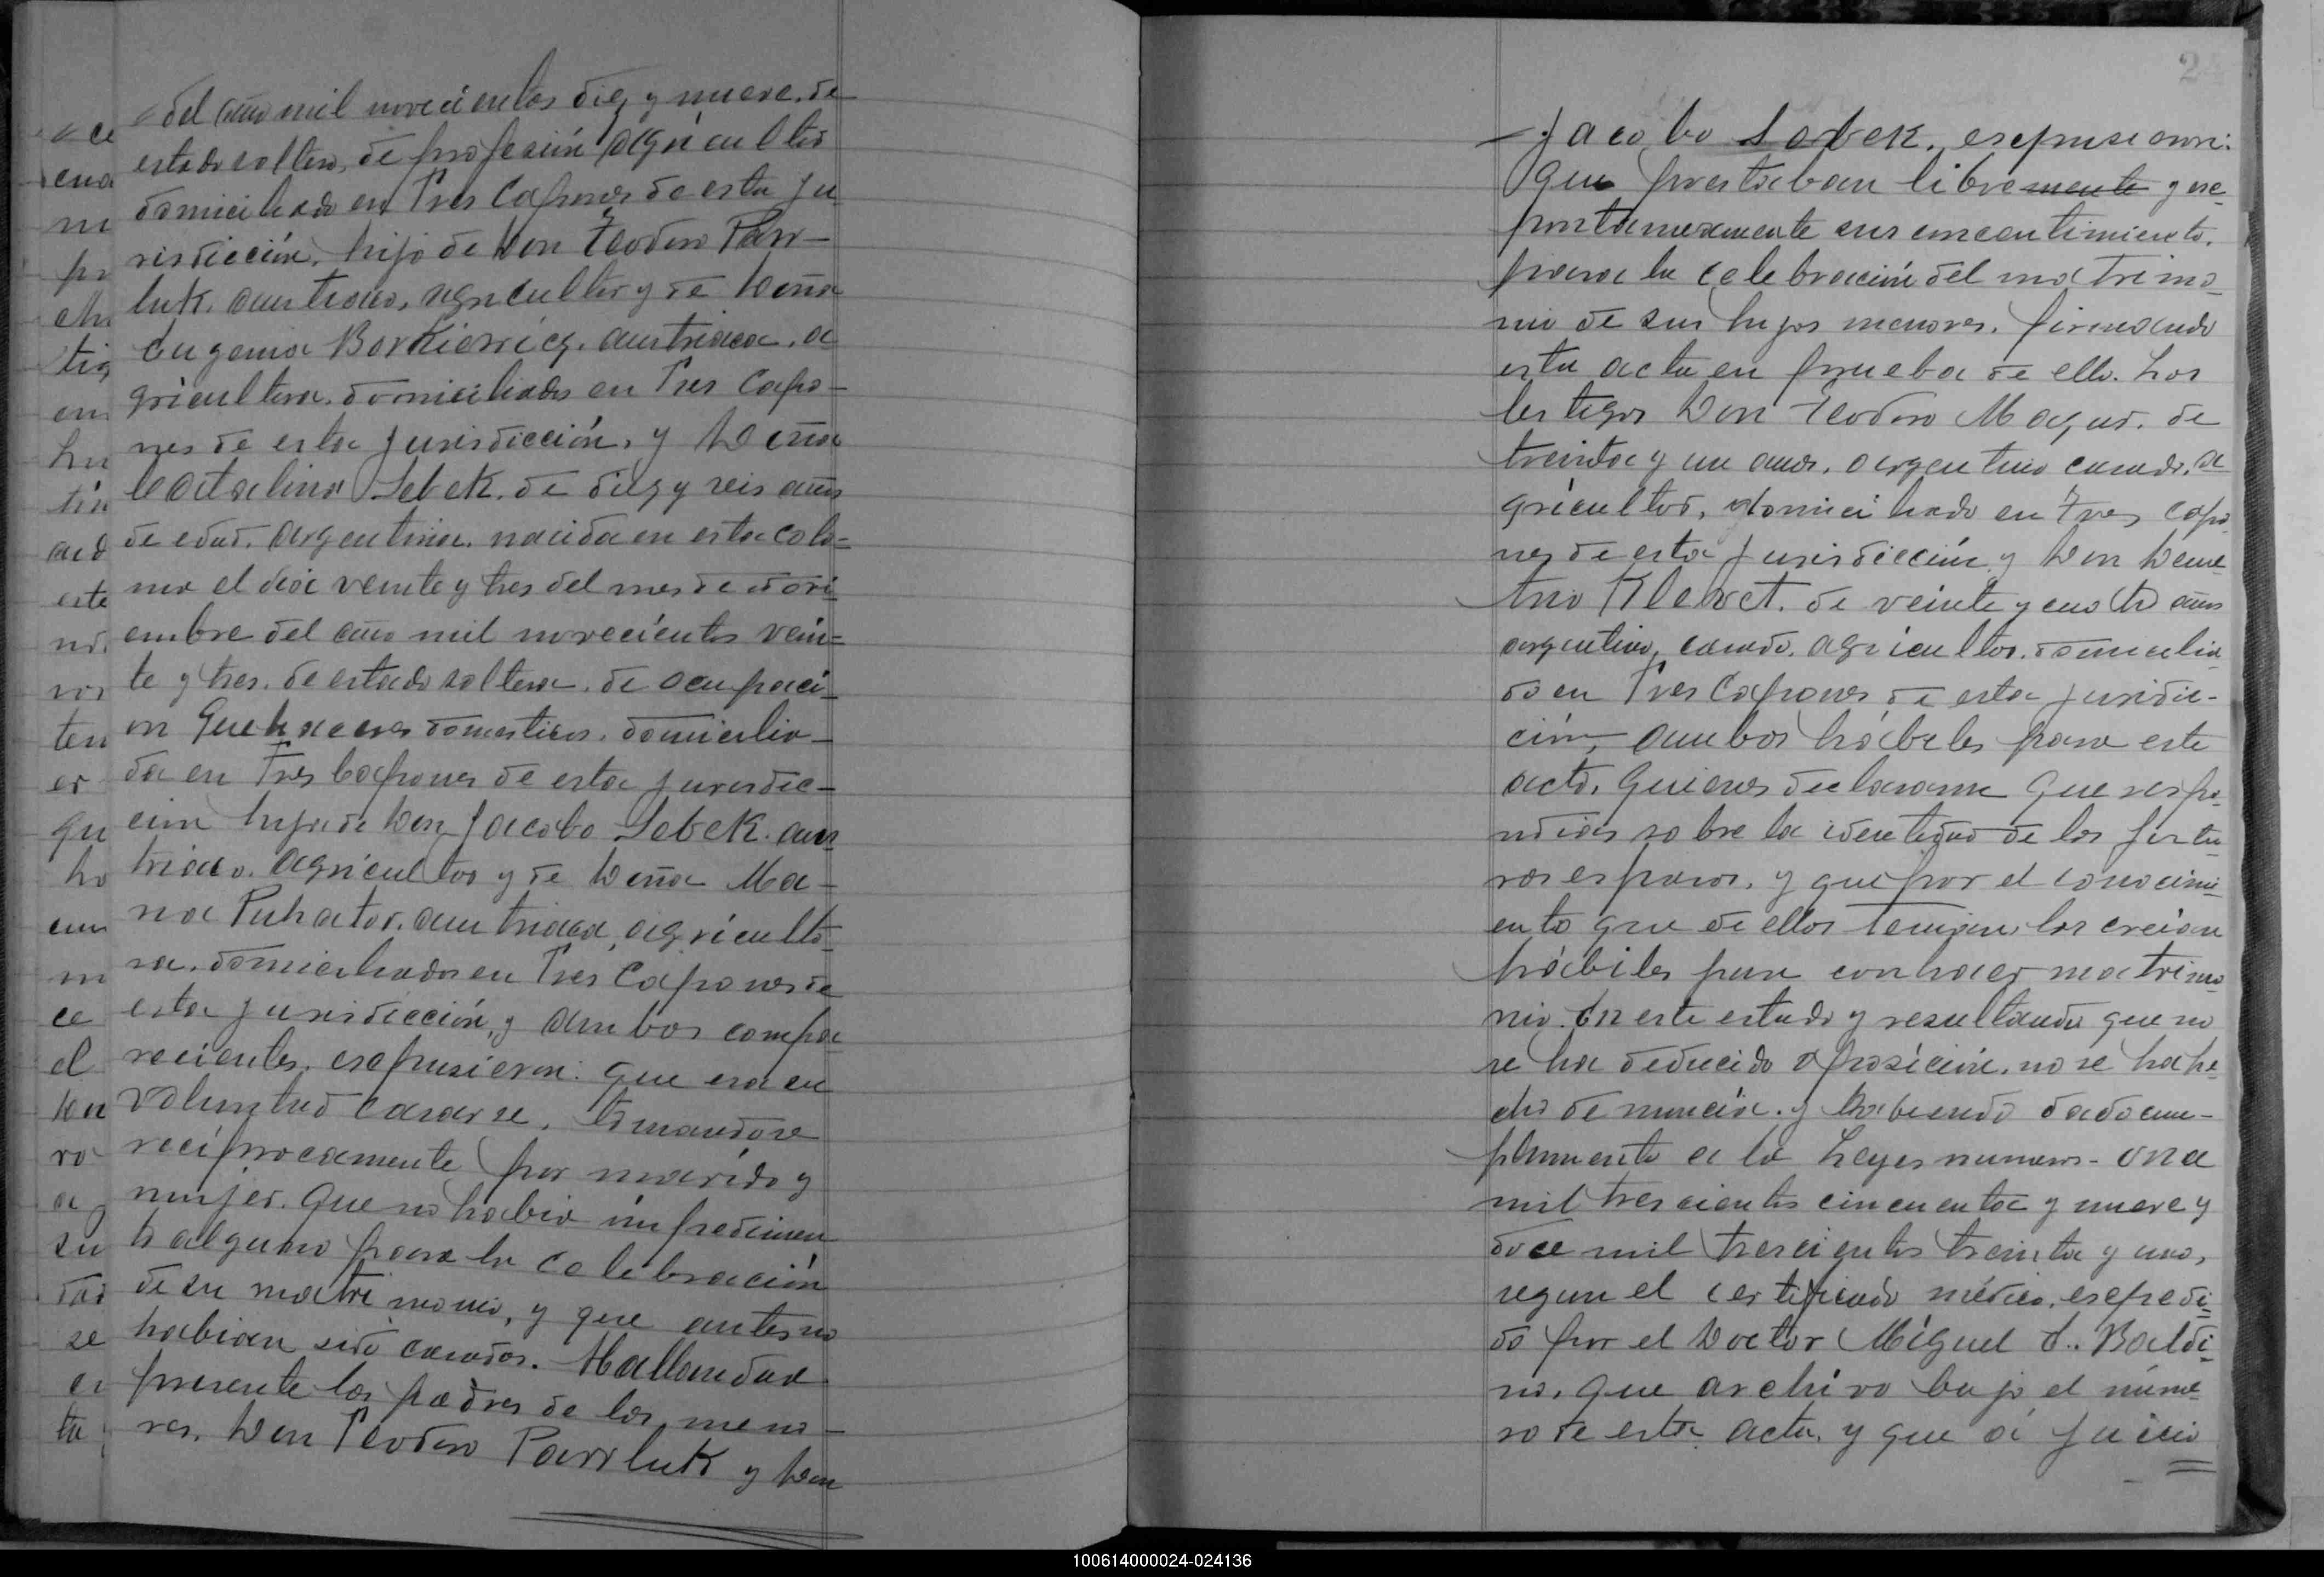 del año mil novecientos diez y nueve. de
estado soltero, de profesión agricultor
domiciliado en Tres Capones de esta ju-
risdicción, hijo de Don Teodoro Paw-
luk, austriaco, agricultor y de Doña
Eugenia Borkiewicz, austriaca, a-
gricultora, domiciliados en Tres Capo-
nes de esta jurisdicción, y Doña
Catalina Sebek, de diez y seis años
de edad, argentina, nacida en esta colo-
nia el dia veinte y tres del mes de
embre del año mil novecientos vein-
te y tres, de estado soltera, de ocupaci-
on Quehaceres domesticos, domicilia-
da en Tres Capones de esta jurisdic-
cion hija de Don Jacobo Sebek, aus-
triaco, agricultor y de Doña Ma-
ria Puhator, austriaca, agriculto-
ra, domiciliados en Tres Capones de
esta jurisdicción, y ambos compa-
recientes, esepusieron: que era su
voluntad casarse, tomandose
recíprocamente por marido y
mujer. Que no habia impedimen
to alguno para la celebración
de su matrimonio, y que antes no
habian sido casados. Hallandose
presente los padres de los meno-
res, Don Teodoro Pawluk y Don
24
Jacobo Sebek, esepusieron:
Que prestaban libremente y es-
pontaneamente sus concentimiento,
para la celebración del matrimo-
nio de sus hijos menores, firmando
esta acta en prueba de ello. Los
testigos Don Teodoro Mazur, de
treinta y un años, argentino casado, a-
gricultor, domiciliado en Tres Capo-
nes de esta jurisdicción y Don Deme-
trio de veinte y cuatro años
argentino, casado, agricultor, domicilia-
do en Tres Capones de esta jurisdic-
ción, ambos hábiles para este
acto, Quienes declararon Que respo-
ndian sobre la identidad de los futu-
ros esposos, y que por el conocimi-
ento que de ellos tenian los creian
hábiles para contraer matrimo-
nio. En este estado y resultando que no
se ha deducido oposición, no se ha he-
cho denuncia, y habiendo dado cum-
plimiento a la Leyes numeros- once
mil trescientos cincuenta y nueve y
doce mil trescientos treinta y uno,
segun el certificado médico, esepedi-
do por el Doctor Miguel A. Baldi-
no, que archivo bajo el núme-
ro de esta acta, y que a juicio
100614000024-024136